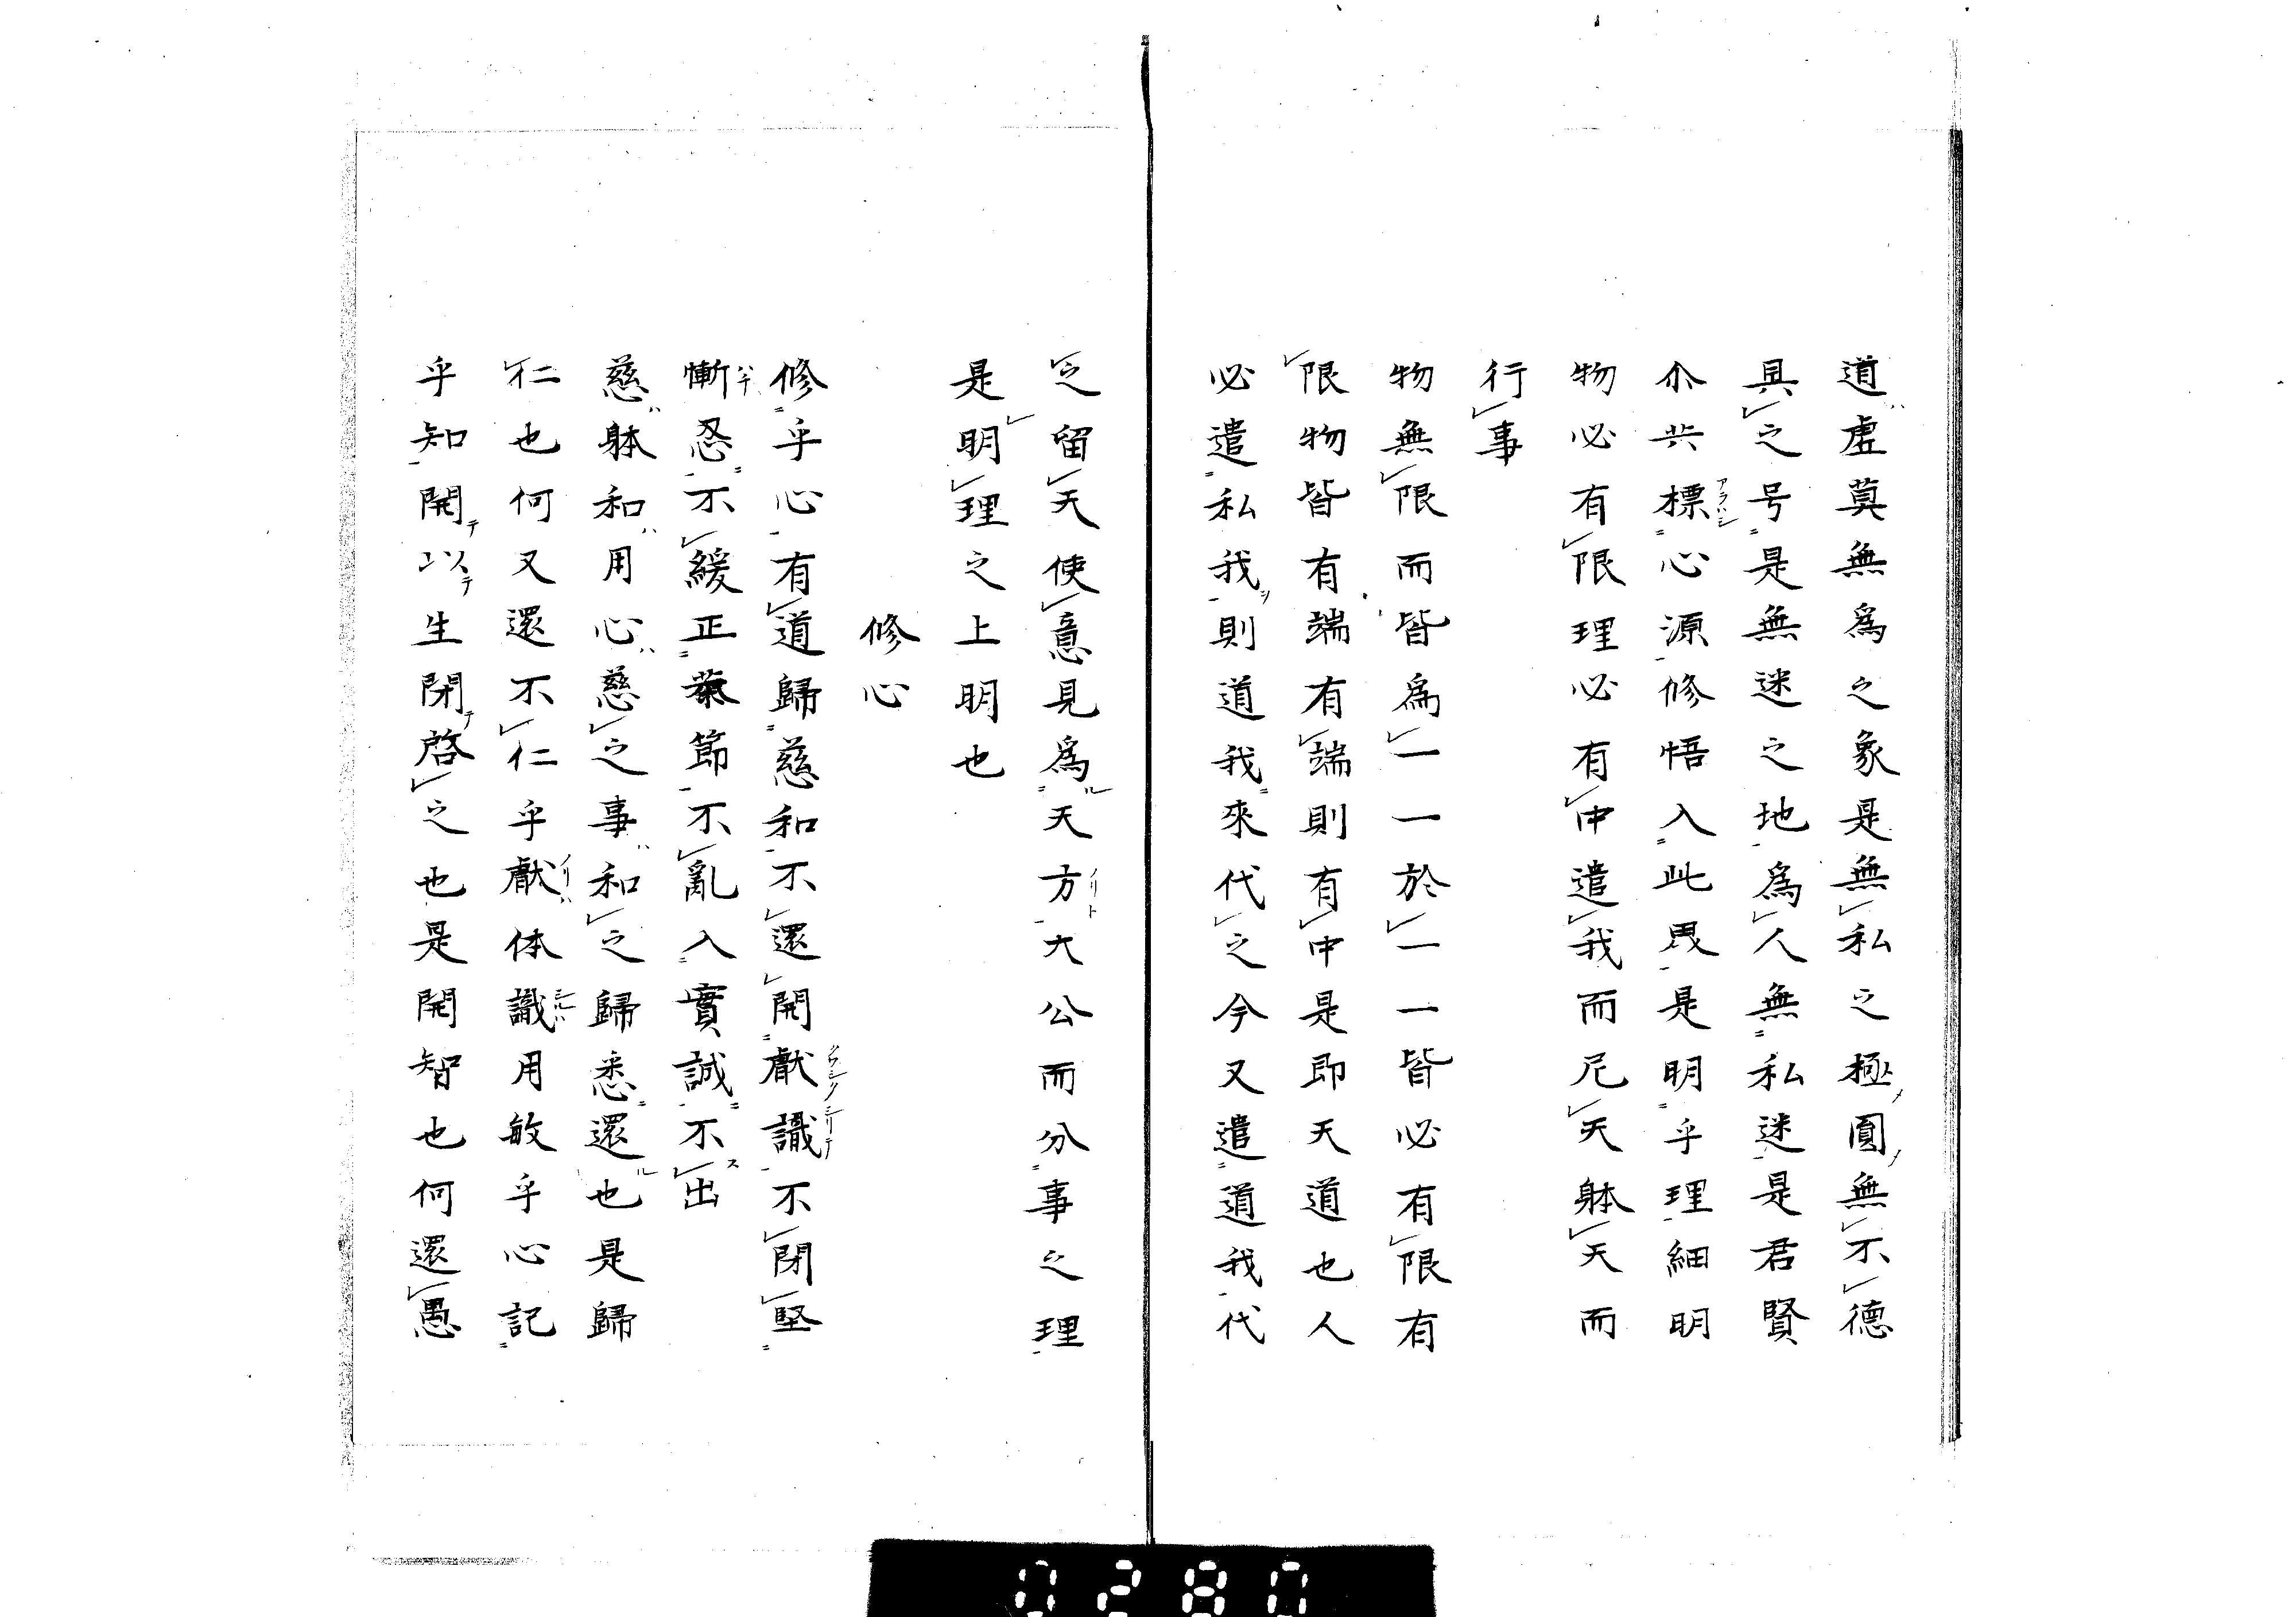 道虛莫無爲之象是無私之極圓無不德
具之号是無迷之地爲人無私迷是君賢
尒共標心源修悟入此畏是明乎理細明
物必有限理必有中遣我而尼天躰天而
行事
物無限而皆爲一一於一一皆必有限有
限物皆有端有端則有中是即天道也人
必遣私我則道我來代之今又遣道我代
之留天使意見爲天方大公而分事之理
是明理之上明也
修心
修乎心有道歸慈和不還開獻識不閉堅
慚忍不緩正藥節不亂入實誠不出
慈躰和用心慈之事和之歸悉還也是歸
仁也何又還不仁乎獻体識用敏乎心記
乎知開以生閉啓之也是開智也何還愚
0280